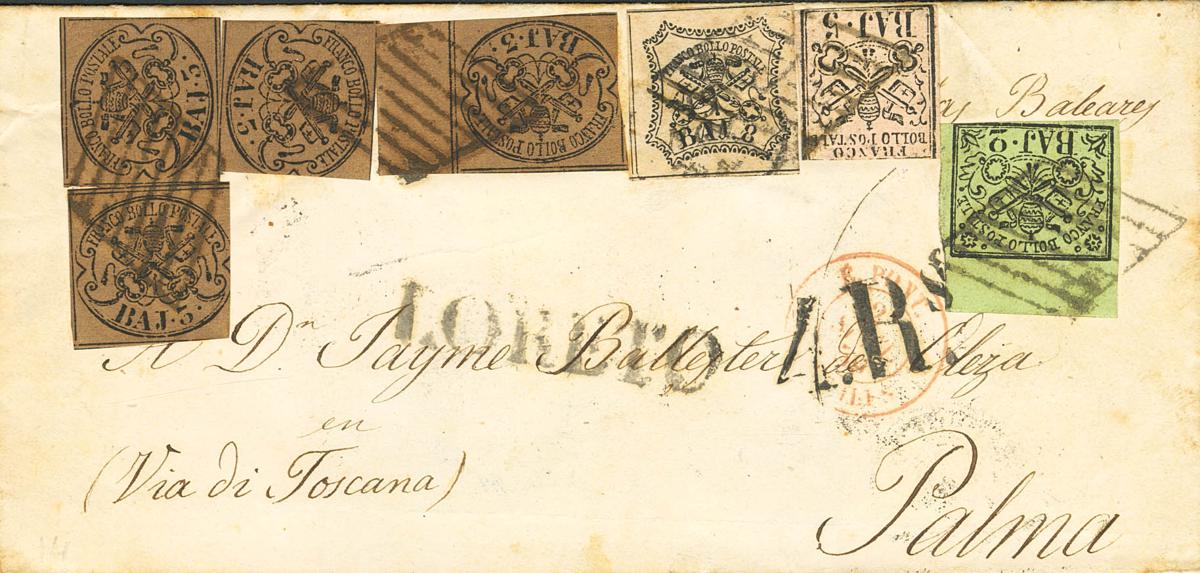 FRANCO BOLLO POSTALE
BAJ·3
FRANCO BOLLO POSTALE
BAJ·3
FRANCO BOLLO POSTALE
BAJ·3
FRANCO BOLLO POSTALE
BAJ·8
BAJ·5
FRANCO
BOLLO POSTALE
Baleares
BAJ·2
FRANCO BOLLO POSTALE
FRANCO BOLLO POSTALE
BAJ·3
LORETO
A.R.
A Dn Jayme Ballester de Oleza
en
(Via di Toscana)
Palma